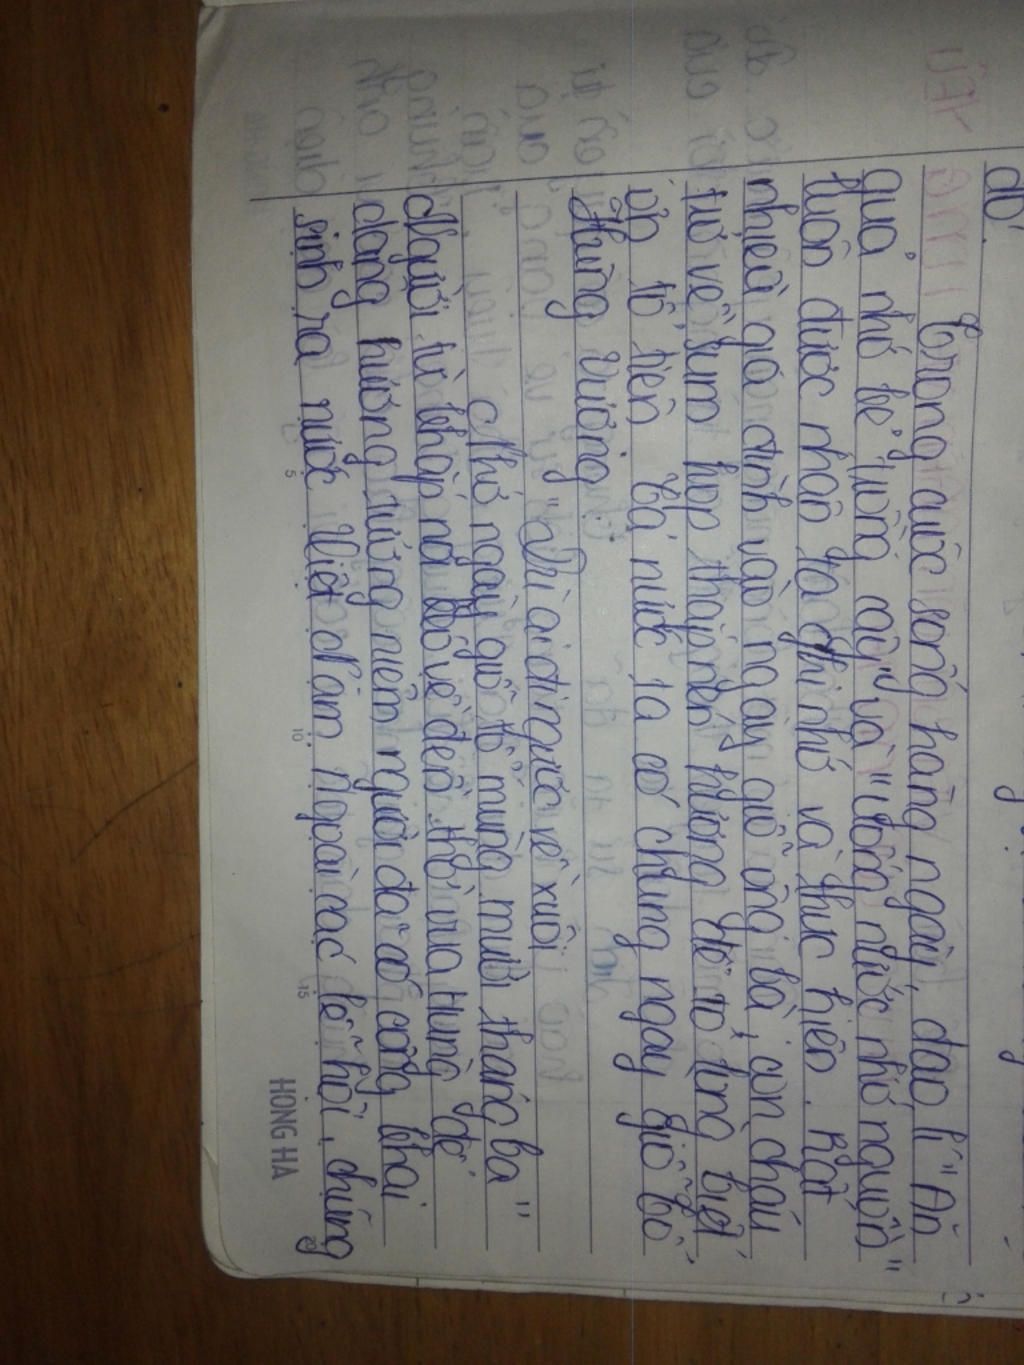 đó.
Trong cuộc sống hàng ngày, đạo lí "Ăn
quả nhớ kẻ trồng cây" và "uống nước nhớ nguồn"
luôn được nhân ta ghi nhớ và thực hiện. Rất
nhiều gia đình vào ngày giỗ ông bà, con cháu
tựu về sum họp thắp nén hương để tỏ lòng biết
ơn tổ tiên. Cả nước ta có chung ngày giỗ tổ
Hùng Vương
"Dù ai đi ngược về xuôi
Nhớ ngày giỗ tổ mùng mười tháng ba"
Người từ khắp nơi đổ về đền thờ vua Hùng để
dâng hương tưởng niệm người đã có công khai
sinh ra nước Việt Nam. Ngoài các lễ hội, chúng
5
10
15
20
HONG HA